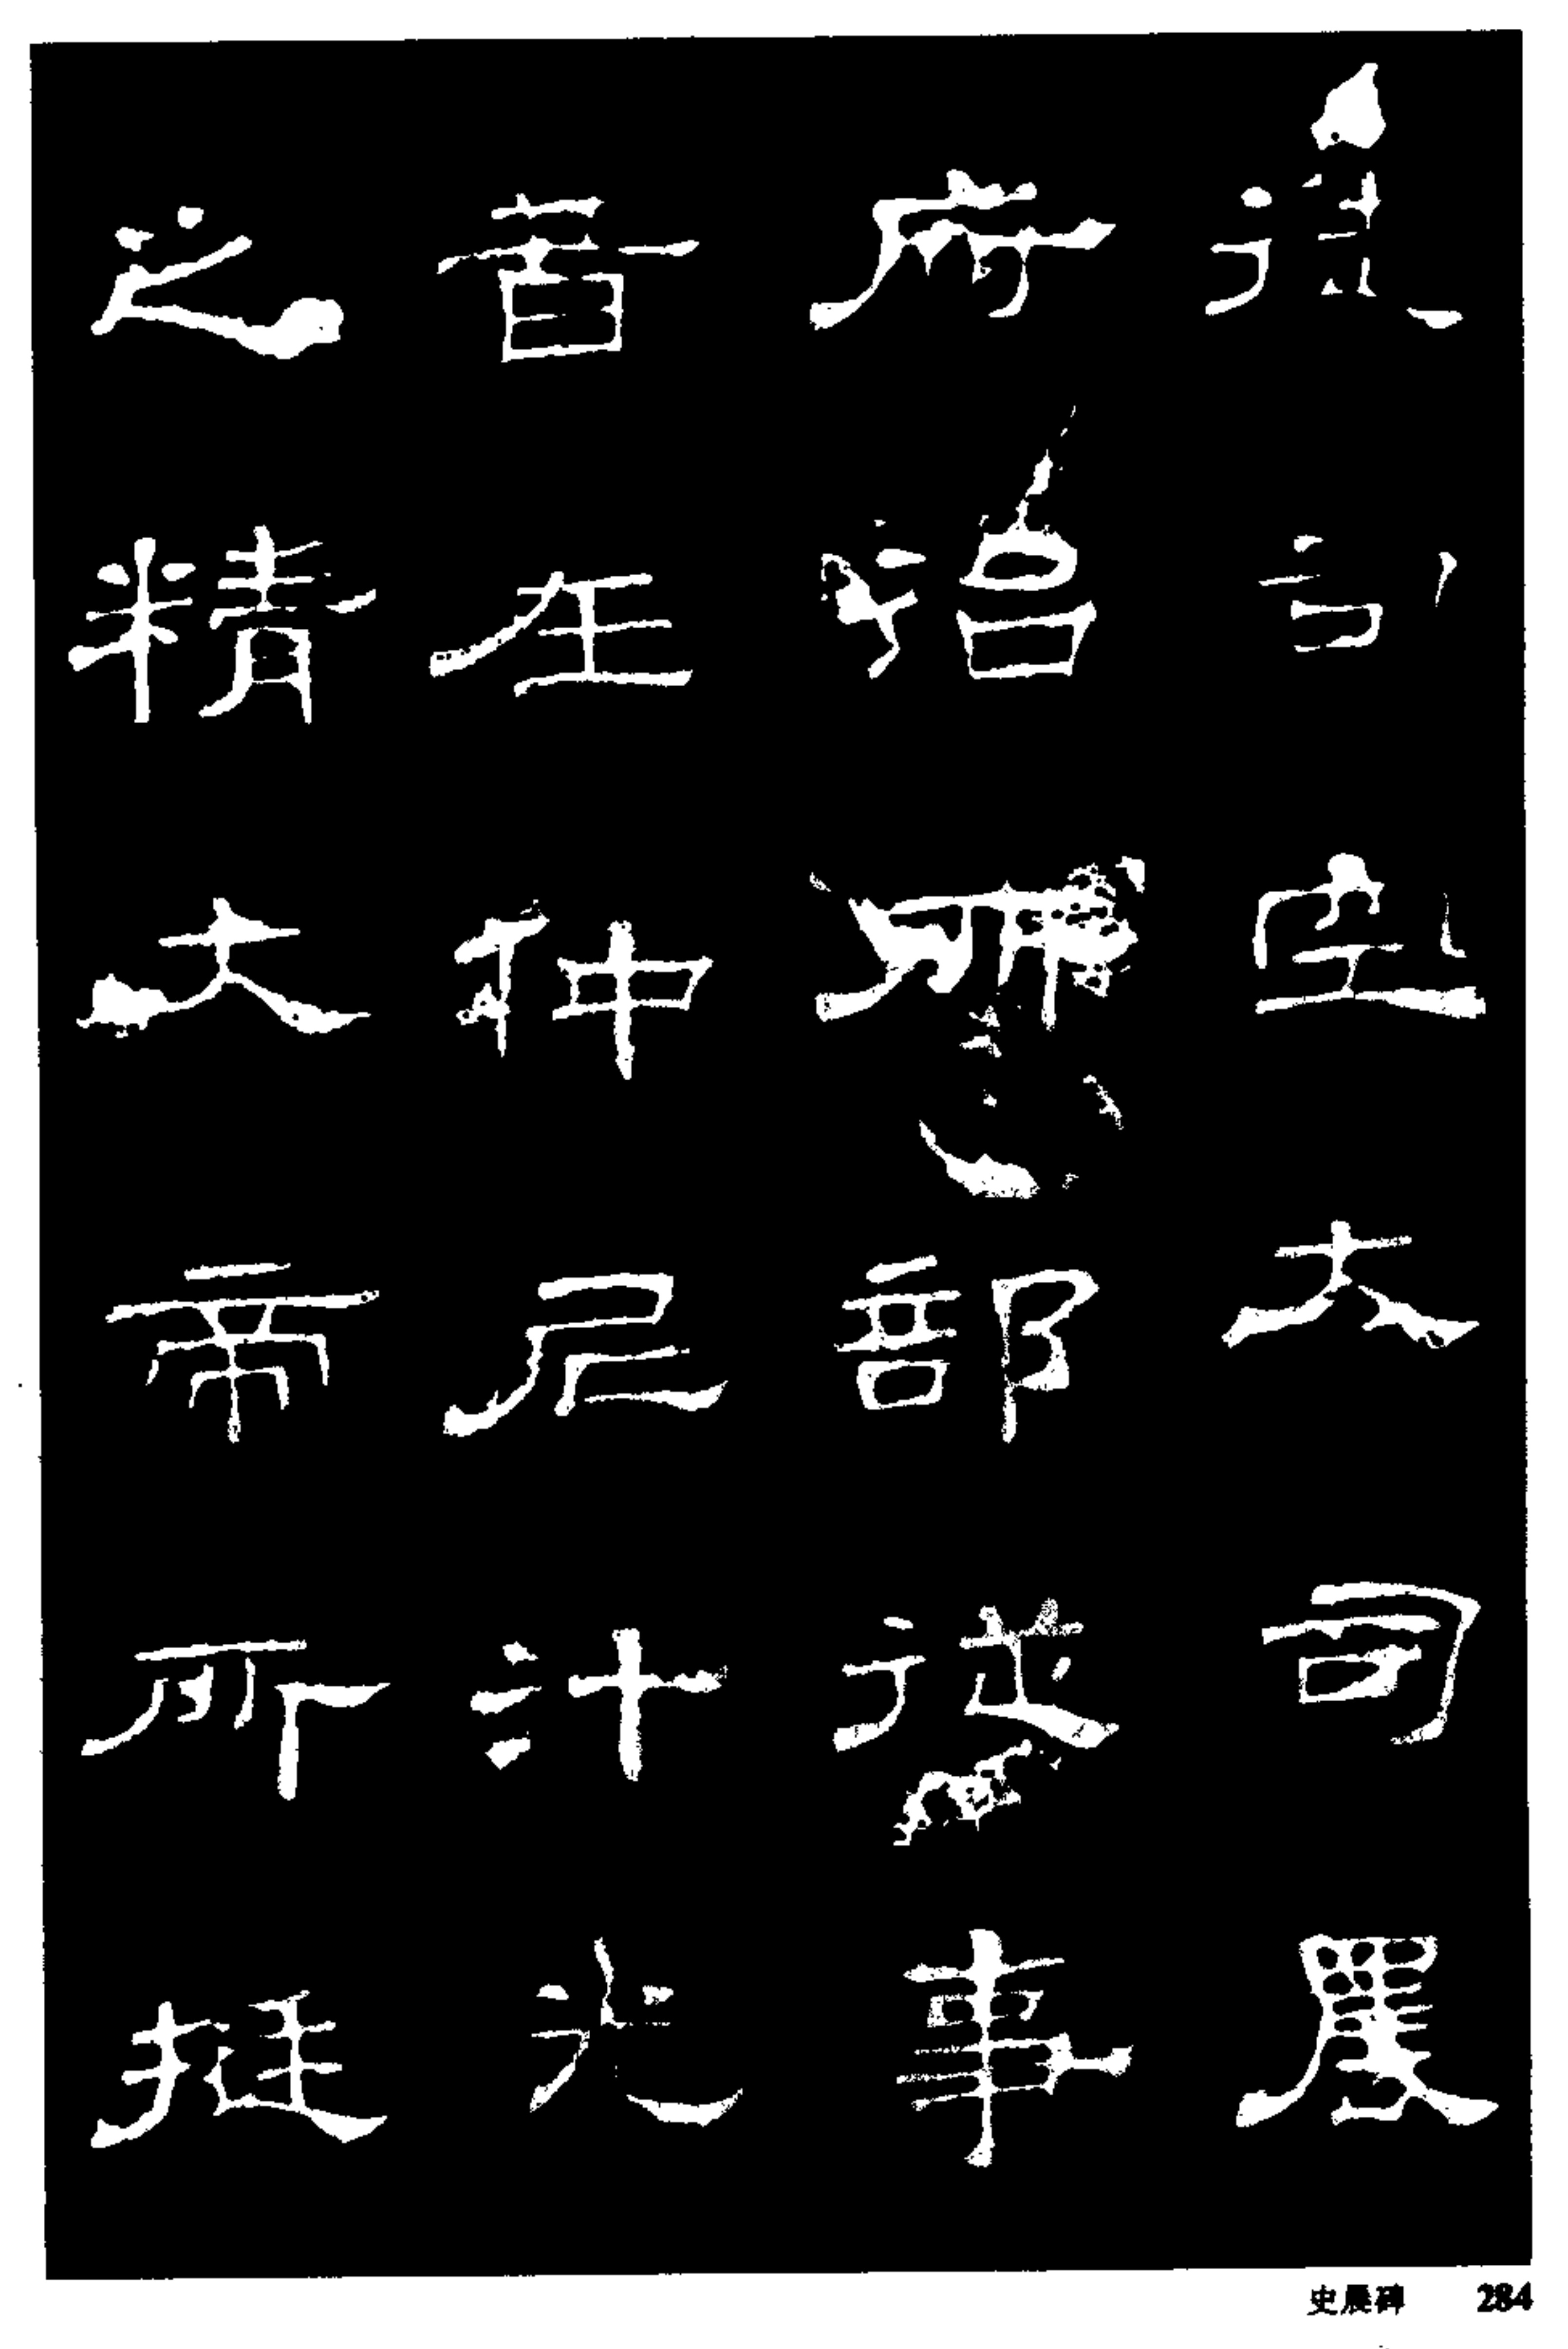 徒司空大司農
府治所部從事
昔在仲尼汁光
之精大帝所挺
史晨碑 284